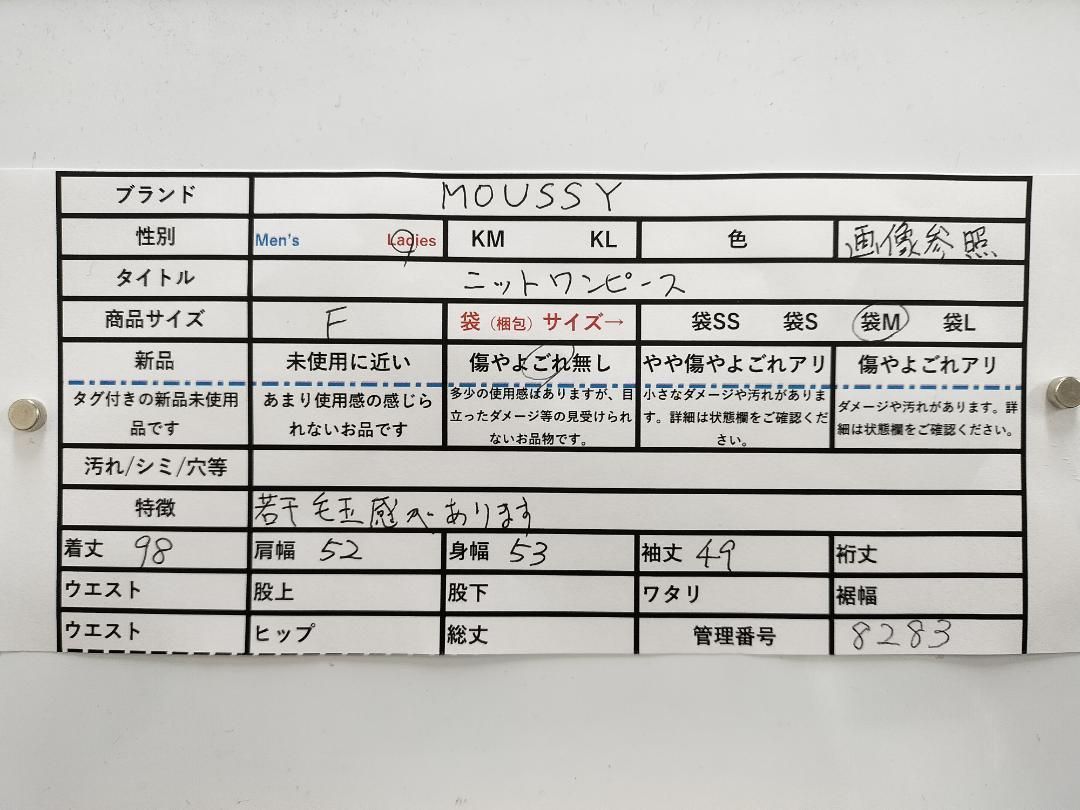 ブランド MOUSSY
性別 Men's Ladies KM KL 色 画像参照
タイトル ニットワンピース
商品サイズ F 袋（梱包）サイズ→ 袋SS 袋S 袋M 袋L
新品 未使用に近い 傷やよごれ無し やや傷やよごれアリ 傷やよごれアリ
タグ付きの新品未使用品です
あまり使用感の感じられないお品です
多少の使用感はありますが、目立ったダメージ等の見受けられないお品物です。
小さなダメージや汚れがあります。詳細は状態欄をご確認ください。
ダメージや汚れがあります。詳細は状態欄をご確認ください。
汚れ/シミ/穴等
特徴 若干毛玉感があります
着丈 98 肩幅 52 身幅 53 袖丈 49 裄丈
ウエスト 股上 股下 ワタリ 裾幅
ウエスト ヒップ 総丈 管理番号 8283